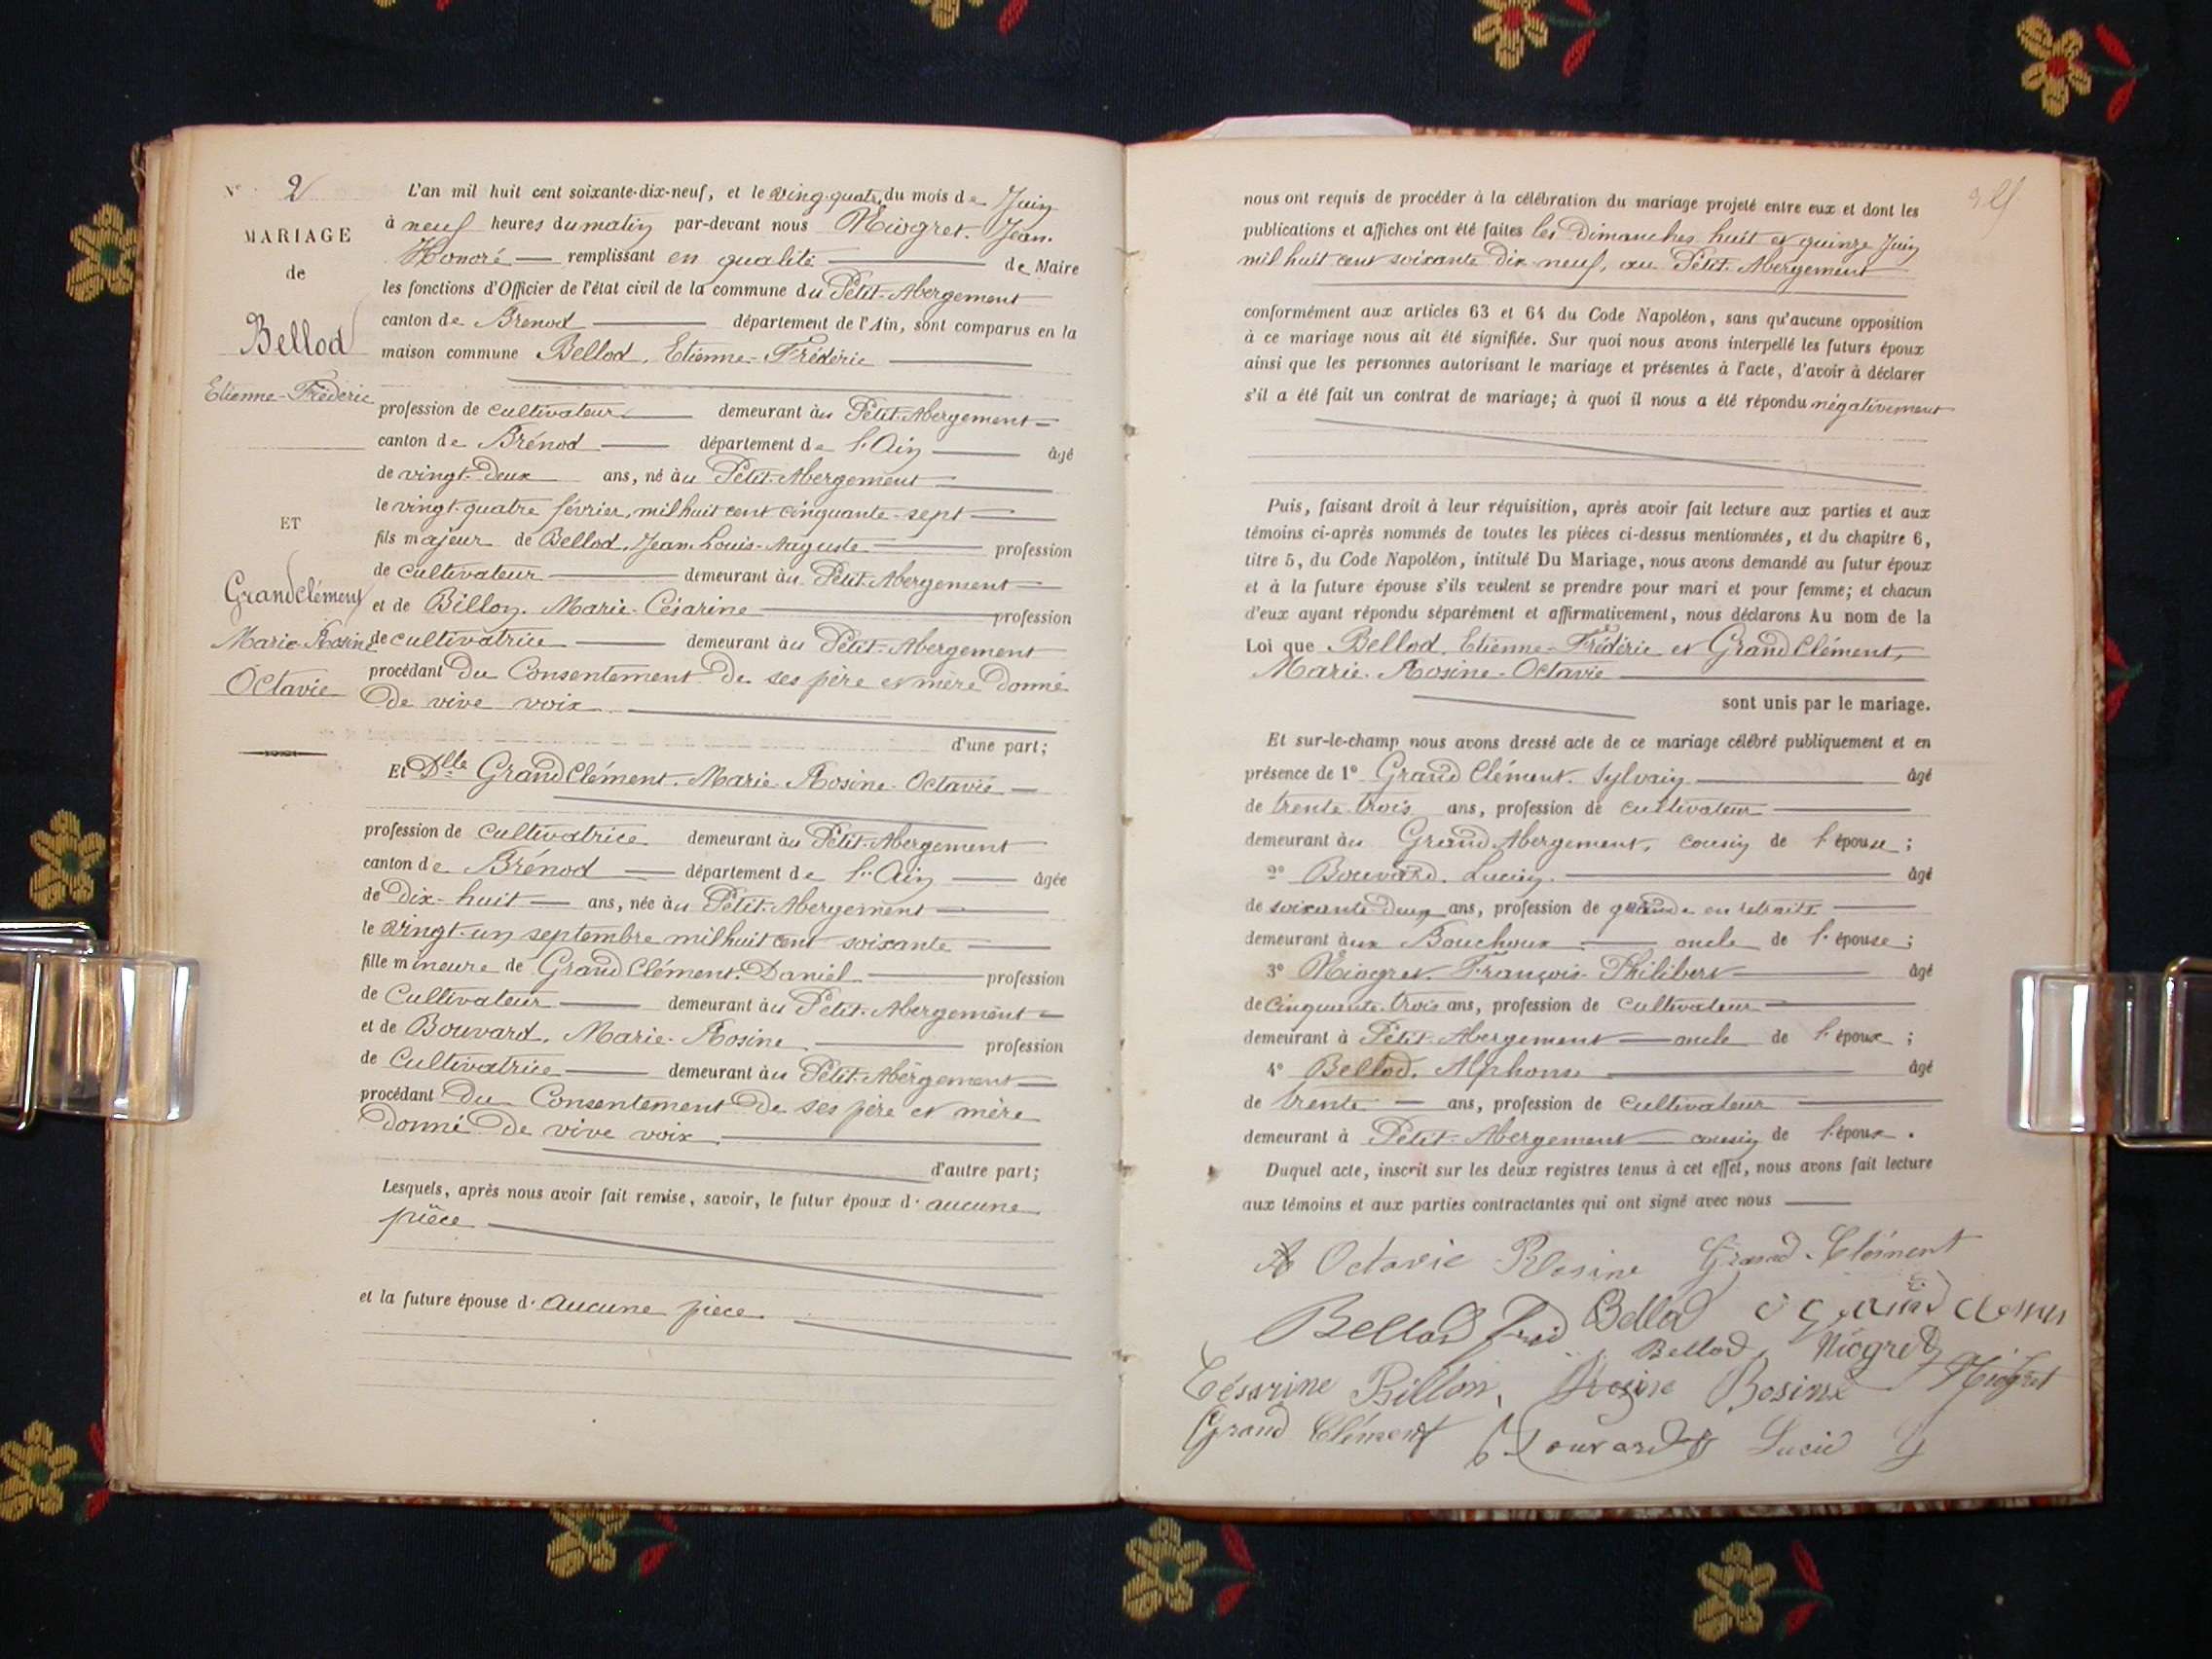 N° 2
MARIAGE
de
Bellod
Etienne-Frédéric
ET
Grandclément
Marie-Rosine
Octavie
L'an mil huit cent soixante-dix-neuf, et le vingt-quatre du mois de Juin
à neuf heures du matin par-devant nous Niogret. Jean.
Honoré — remplissant en qualité — de Maire
les fonctions d'Officier de l'état civil de la commune du Petit-Abergement
canton de Brenod — département de l'Ain, sont comparus en la
maison commune Bellod, Etienne-Frédéric
profession de cultivateur — demeurant au Petit-Abergement
canton de Brénod — département de l'Ain — âgé
de vingt-deux ans, né au Petit-Abergement
le vingt-quatre février, mil huit cent cinquante-sept
fils majeur de Bellod, Jean-Louis-Auguste — profession
de cultivateur — demeurant au Petit-Abergement
et de Billon. Marie-Césarine — profession
de cultivatrice — demeurant au Petit-Abergement
procédant du Consentement de ses père et mère donné
de vive voix
d'une part;
Et Dlle GrandClément. Marie-Rosine-Octavie
profession de cultivatrice demeurant au Petit-Abergement
canton de Brénod — département de l'Ain — âgée
de dix-huit — ans, née au Petit-Abergement
le vingt-un septembre mil huit cent soixante
fille mineure de GrandClément. Daniel — profession
de Cultivateur — demeurant au Petit-Abergement
et de Bouvard, Marie-Rosine — profession
de Cultivatrice — demeurant au Petit-Abergement
procédant du Consentement de ses père et mère
donné de vive voix.
d'autre part;
Lesquels, après nous avoir fait remise, savoir, le futur époux d'aucune
pièce
et la future épouse d'aucune pièce
nous ont requis de procéder à la célébration du mariage projeté entre eux et dont les
publications et affiches ont été faites les Dimanches huit et quinze Juin
mil huit cent soixante dix-neuf, au Petit-Abergement
conformément aux articles 63 et 64 du Code Napoléon, sans qu'aucune opposition
à ce mariage nous ait été signifiée. Sur quoi nous avons interpellé les futurs époux
ainsi que les personnes autorisant le mariage et présentes à l'acte, d'avoir à déclarer
s'il a été fait un contrat de mariage; à quoi il nous a été répondu négativement
Puis, faisant droit à leur réquisition, après avoir fait lecture aux parties et aux
témoins ci-après nommés de toutes les pièces ci-dessus mentionnées, et du chapitre 6,
titre 5, du Code Napoléon, intitulé Du Mariage, nous avons demandé au futur époux
et à la future épouse s'ils veulent se prendre pour mari et pour femme; et chacun
d'eux ayant répondu séparément et affirmativement, nous déclarons Au nom de la
Loi que Bellod, Etienne-Frédéric et GrandClément,
Marie-Rosine-Octavie
sont unis par le mariage.
Et sur-le-champ nous avons dressé acte de ce mariage célébré publiquement et en
présence de 1° GrandClément. Sylvain — âgé
de trente-trois ans, profession de cultivateur
demeurant au Grand Abergement, cousin de l'épouse;
2° Bouvard. Lucien — âgé
de soixante-deux ans, profession de garde en retraite
demeurant aux Bouchoux — oncle de l'épouse;
3° Niogret François-Philibert — âgé
de cinquante-trois ans, profession de cultivateur
demeurant à Petit-Abergement — oncle de l'époux;
4° Bellod. Alphonse — âgé
de trente — ans, profession de cultivateur
demeurant à Petit-Abergement — cousin de l'époux.
Duquel acte, inscrit sur les deux registres tenus à cet effet, nous avons fait lecture
aux témoins et aux parties contractantes qui ont signé avec nous
Octavie Rosine Grand-Clément
Bellod Fred Bellod
Bellod Niogret
Césarine Billon, Rosine Niogret
Grand Clément Bouvard Lucie